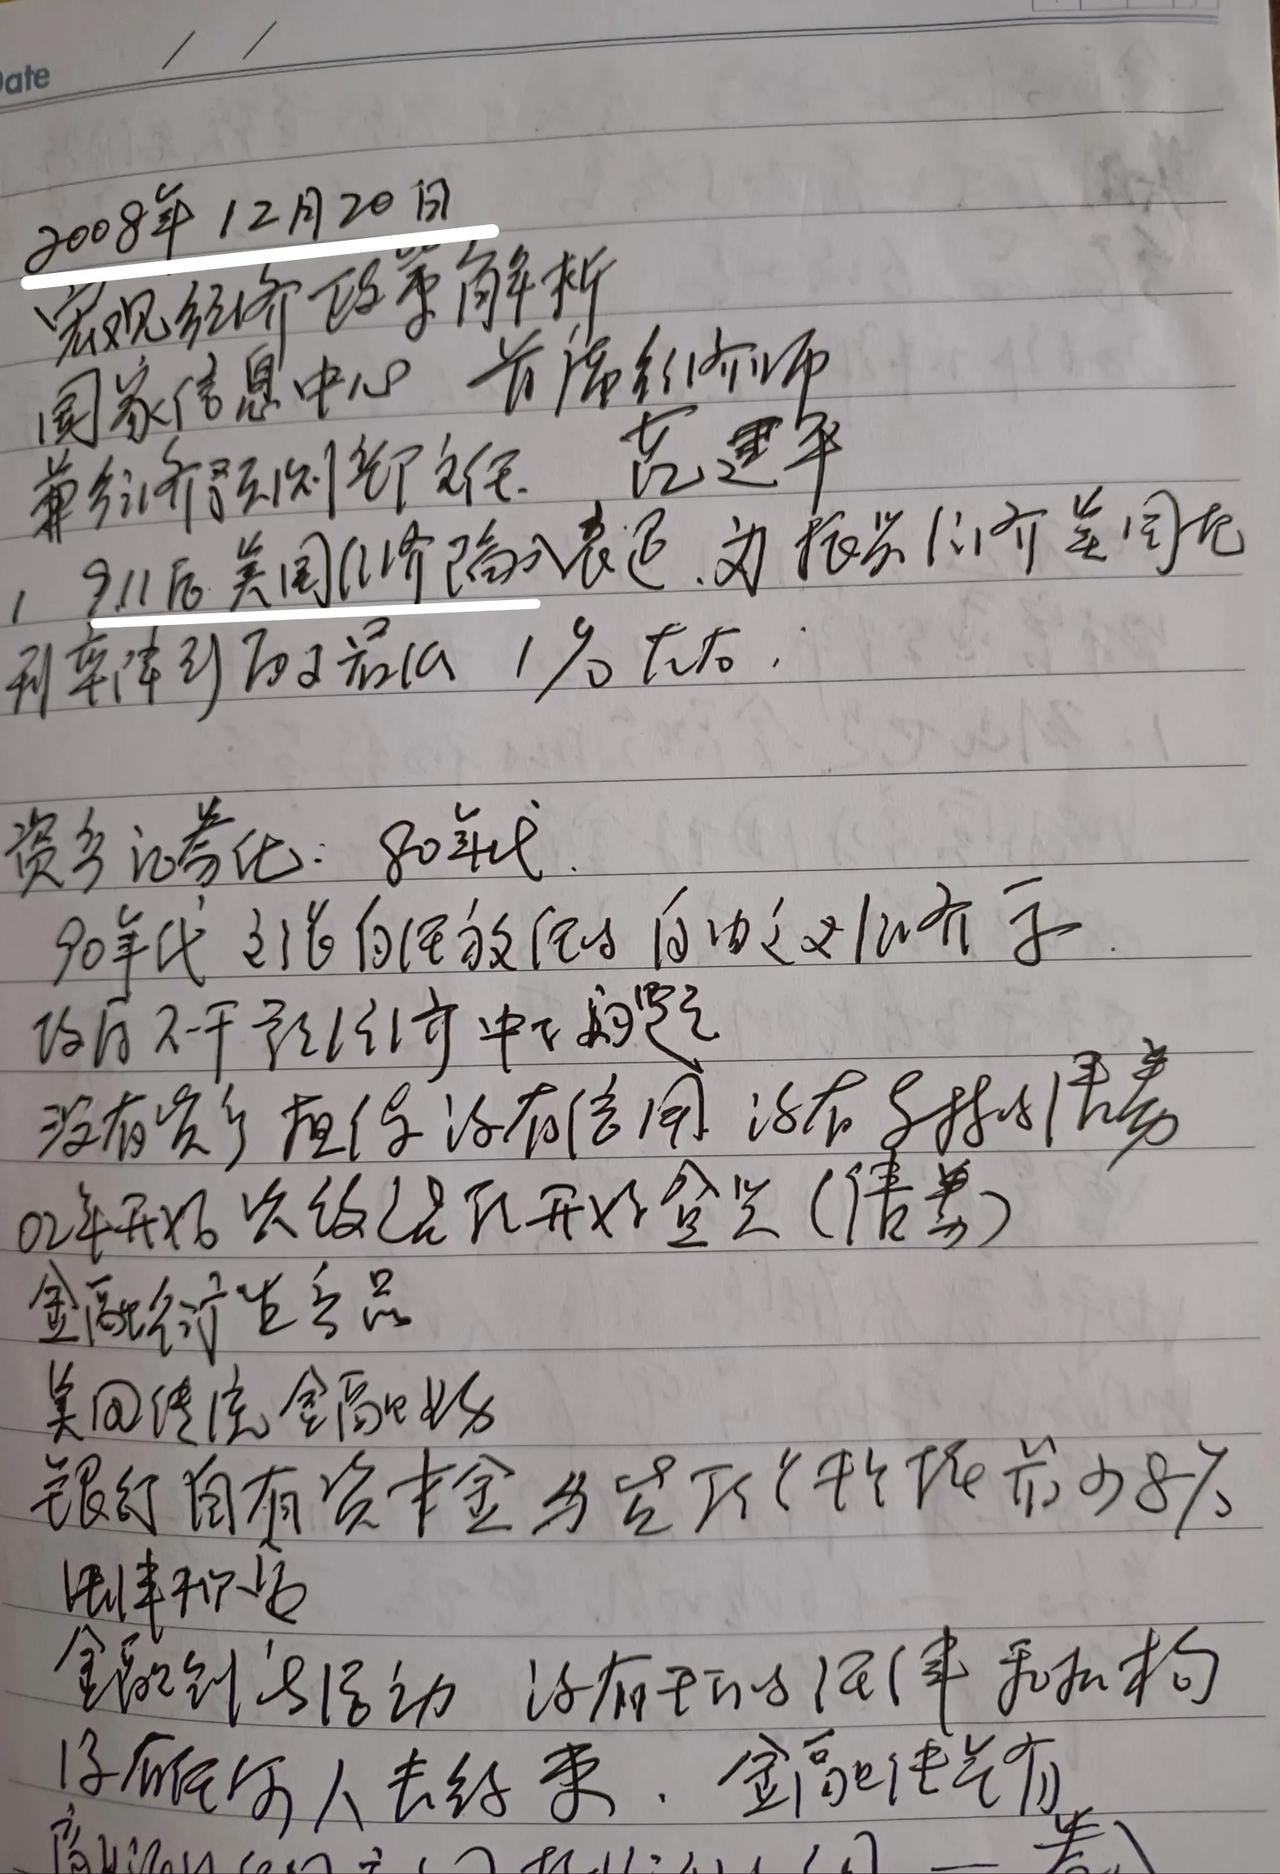 Date / /
2008年12月20日
宏观经济政策解析
国家信息中心 首席经济师
兼经济预测部主任. 范建平
1 9.11后美国经济陷入衰退,为振兴经济美国把
利率降到历史最低 1%左右.
资产证券化: 80年代.
90年代 主张自由放任的自由主义经济学.
政府不干预经济中的问题
没有资产担保 没有信用 没有支持的债券
02年开始 次级债 开始发(债券)
金融衍生产品
美国传统金融业务
银行自有资本金与贷款 8%
法律
金融创新活动 没有专门的法律和机构
没有任何人去约束. 金融